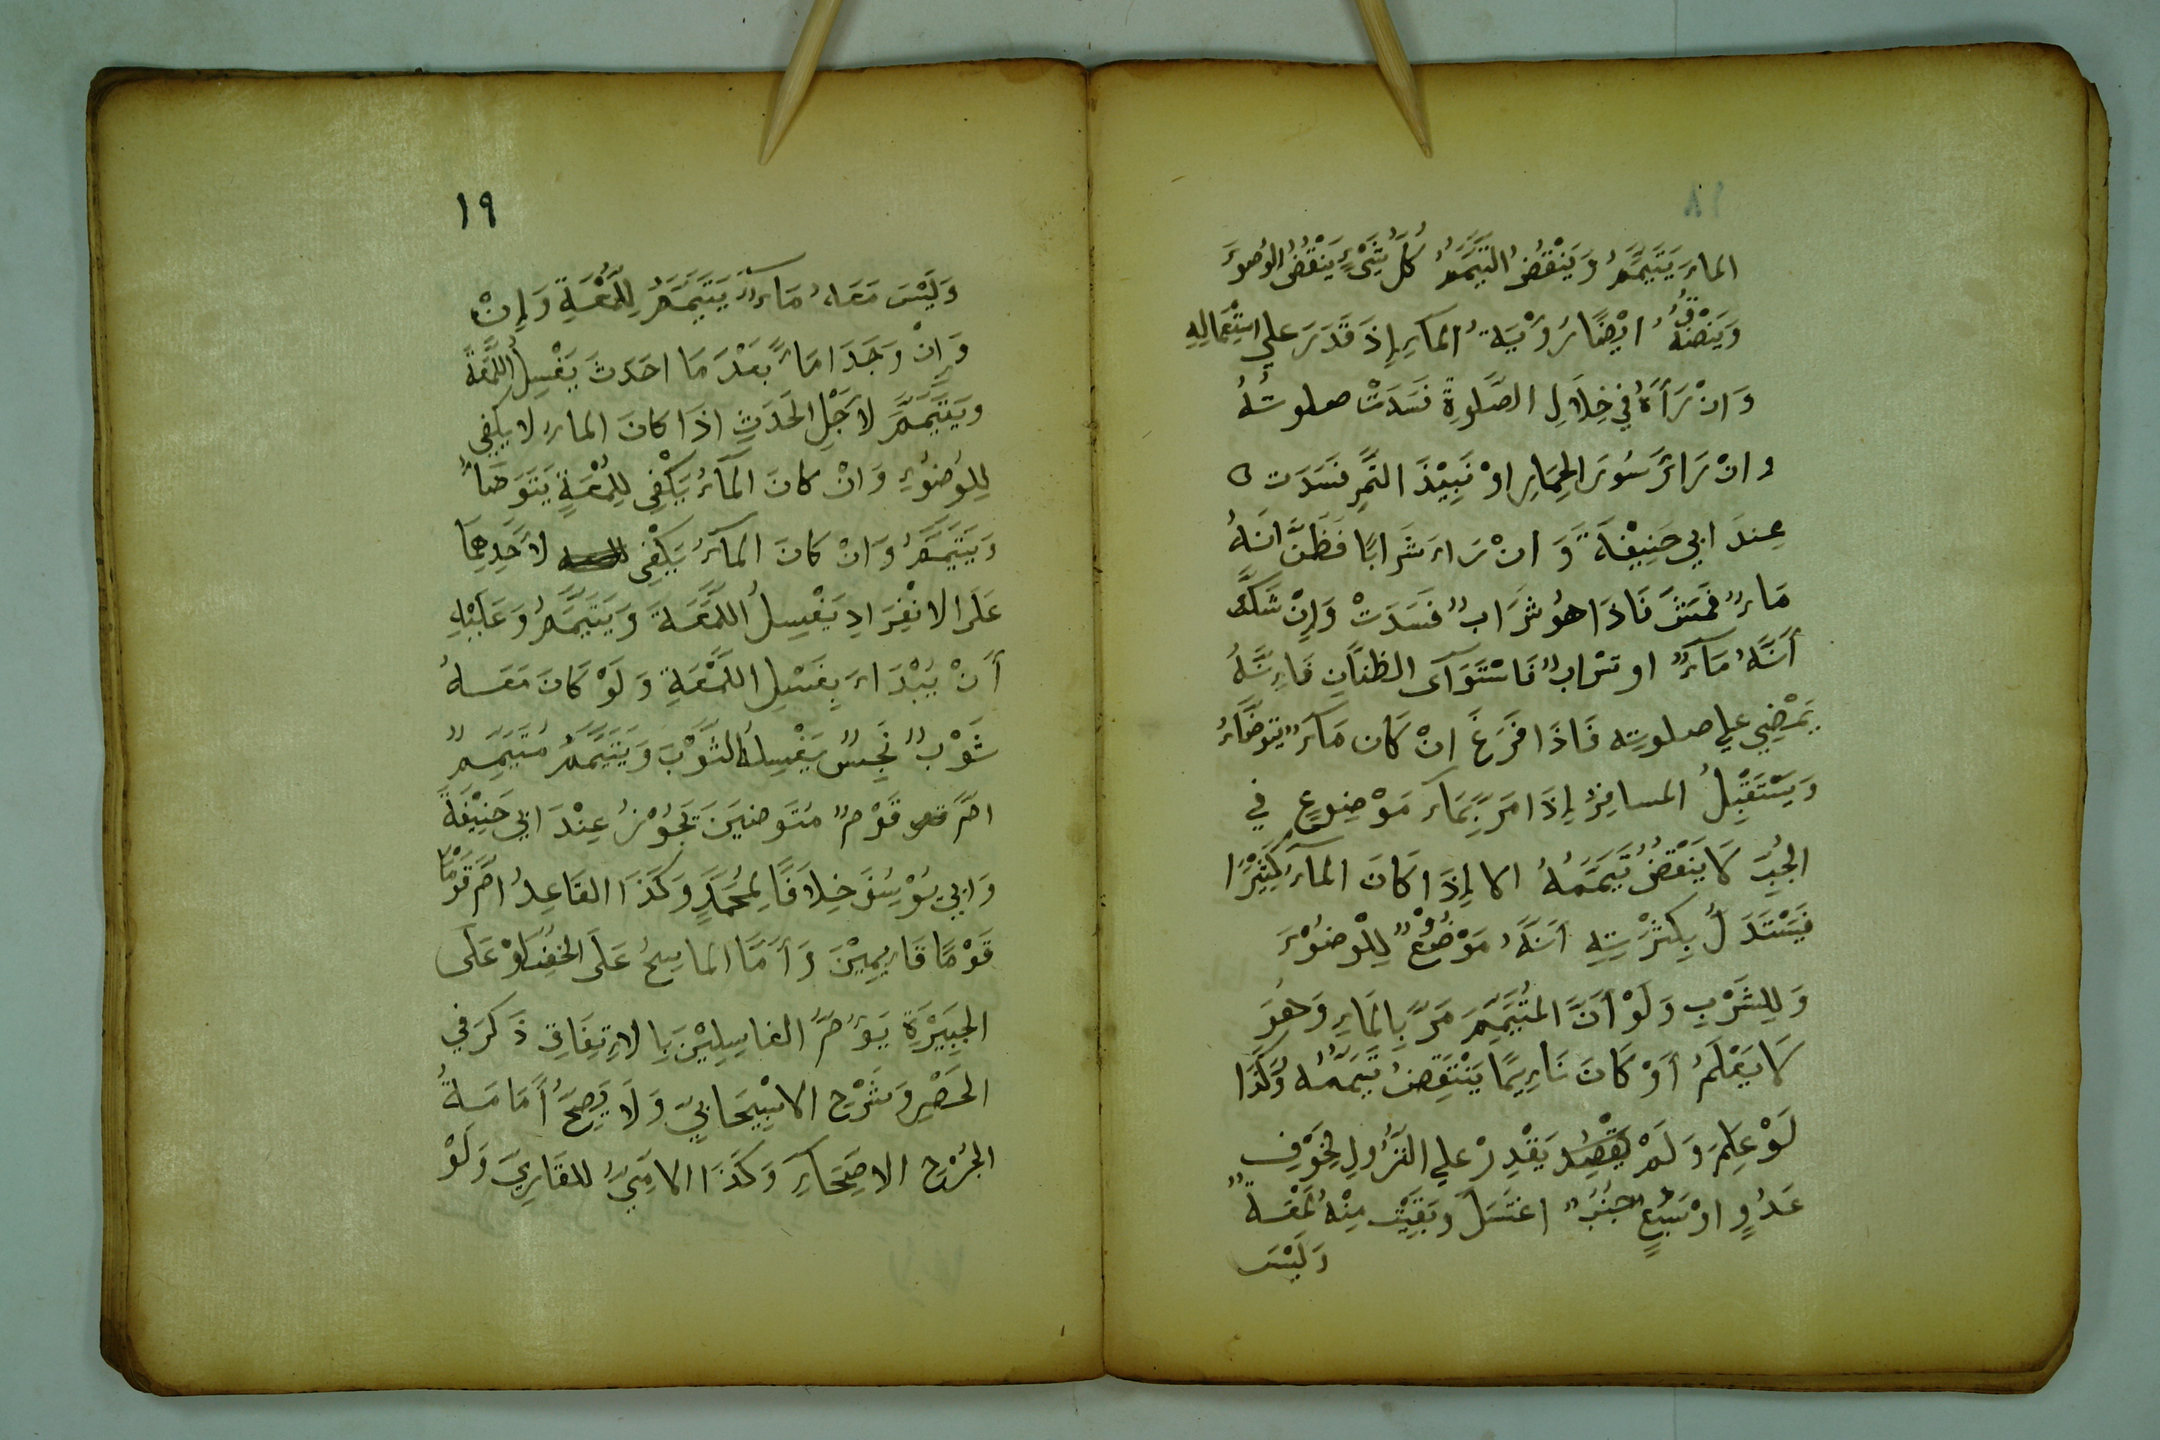 الماءَ يَتَيَمَّمُ وَيَنْقُضُ التَّيَمُّمَ كُلُّ شَيْءٍ يَنْقُضُ الوُضوءَ
وَيَنْقُضُهُ ايْضًا رُؤْيَةُ المَآءِ اِذَ قَدَرَ علي اسْتِعْمَالِهِ
وَانْ رَأَهُ فِي خِلَالِ الصَّلَوةِ فَسَدَتْ صلوتُهُ
وانْ رَائَ سُورَ الحِمَارِ اوْ نَبِيْذَ التَّمرِ فَسَدَت
عِندَ ابي حَنِيْفَةَ وَ انْ رَاءَ شَرَابًا فَظَنَّ انَهُ
مَاءٌ فَمَشَى فَاذَا هوُ شَرَابٌ فَسَدَتْ وَاِنْ شَكَّ
أَنَّهُ مَآءٌ او سَرابٌ فَاسْتَوَآى الظنَانِ فَاِنَّهُ
يَمْضِي علي صلوتِه فَاذَا فَرَغَ انْ كَان مَآءً يتوضَّاءُ
وَيَسْتَقْبِلُ المسافِرُ اِذَا مَرَّ بِمَآءٍ مَوْضوعٍ في
الجُبِّ لَا يَنْقُضُ تَيَمُّمُهُ الا اِذَا كَانَ المَآءُ كَثِيْرًا
فَيَسْتَدَلُّ بِكثْرَتِهِ أَنَهَّ مَوْضُوْعٌ لِلْوضُوْءِ
وَلِلشُّرْبِ وَلَوْ أَنَّ المُتَيَمِّمَ مَرَّ بِالمَاءِ وَهُوَ
لَا يَعْلَمُ أَوْ كَانَ نَاىِٕمًا يَنْتَقِضُ تَيَمُّمُهُ وَكَذَا
لَوْ عَلِمَ وَلَمْ يَقْدِرْ علي النُّزُولِ لِخَوْفِ
عَدُوٍّ اوْ سَبُعٍ جُنُبٌ اغْتَسَلَ وَبَقِيَتْ مِنْهُ لُمْعَةٌ
وَلَيْسَ
١٩
وَلَيْسَ مَعَهُ مَآءٌ يَتَيَمَّمُ لِلُّمْعَةِ وَاِنْ
وَاِنْ وَجَدَا مَاءً بَعْدَ مَا احَدثَ يَغْسِلُ اللُّمْعَةَ
ويَتَيَمَّمُ لاَجْلِ الحَدَثِ اذَا كانَ الماءُ لا يَكْفِي
لِلوُضُوْءِ وَانْ كانَ المَآءُ يَكْفِى لِلُّمْعَةِ يَتَوَضَأُ
وَيَتَيَمَّمُ وَانْ كَانَ المَآءُ يَكْفِى لاَحَدِهِمَا
عَلَى الانْفِرَادِ يَغْسِلُ اللُّمْعَةَ وَيَتَيَمَّمُ وَعَلَيْهِ
أَنْ يَبْدَاءَ بِغَسْلِ اللُّمْعَةِ وَلَوْ كَانَ مَعَهُ
ثَوْبٌ نَجِسٌ يَغْسِلُ الثَوْبَ وَيَتَيَمَّمُ مُتَيَمِّمٌ
امَّ قَوْمٌ مُتَوضئينَ يَجُوْزُ عِنْدَ ابي حَنِيْفَةَ
وَابي يُوْسُفَ خِلاَفًا لِمُحَمَّدٍ وَكَذَا القَاعِدُ امَّ قَوْمًا
قَوْمًا قَاىِٕمِيْنَ وَأَمَّا الماسِحُ عَلَى الخُفِّ اَوْ عَلَى
الجَبِيْرَةِ يَؤُمُّ الغاسِلِيْنَ بِالاِتِفَاقِ ذَكَرَ في
الحَصْرِ وَشَرْحِ الاسْبِيْجَابِيِّ وَلَا يَصِحُّ أَمَامَةُ
الجُرْحِ الاصِحَّاءِ وَكَذَا الاُمِّيُ لِلقَارِيِ وَلَوْ